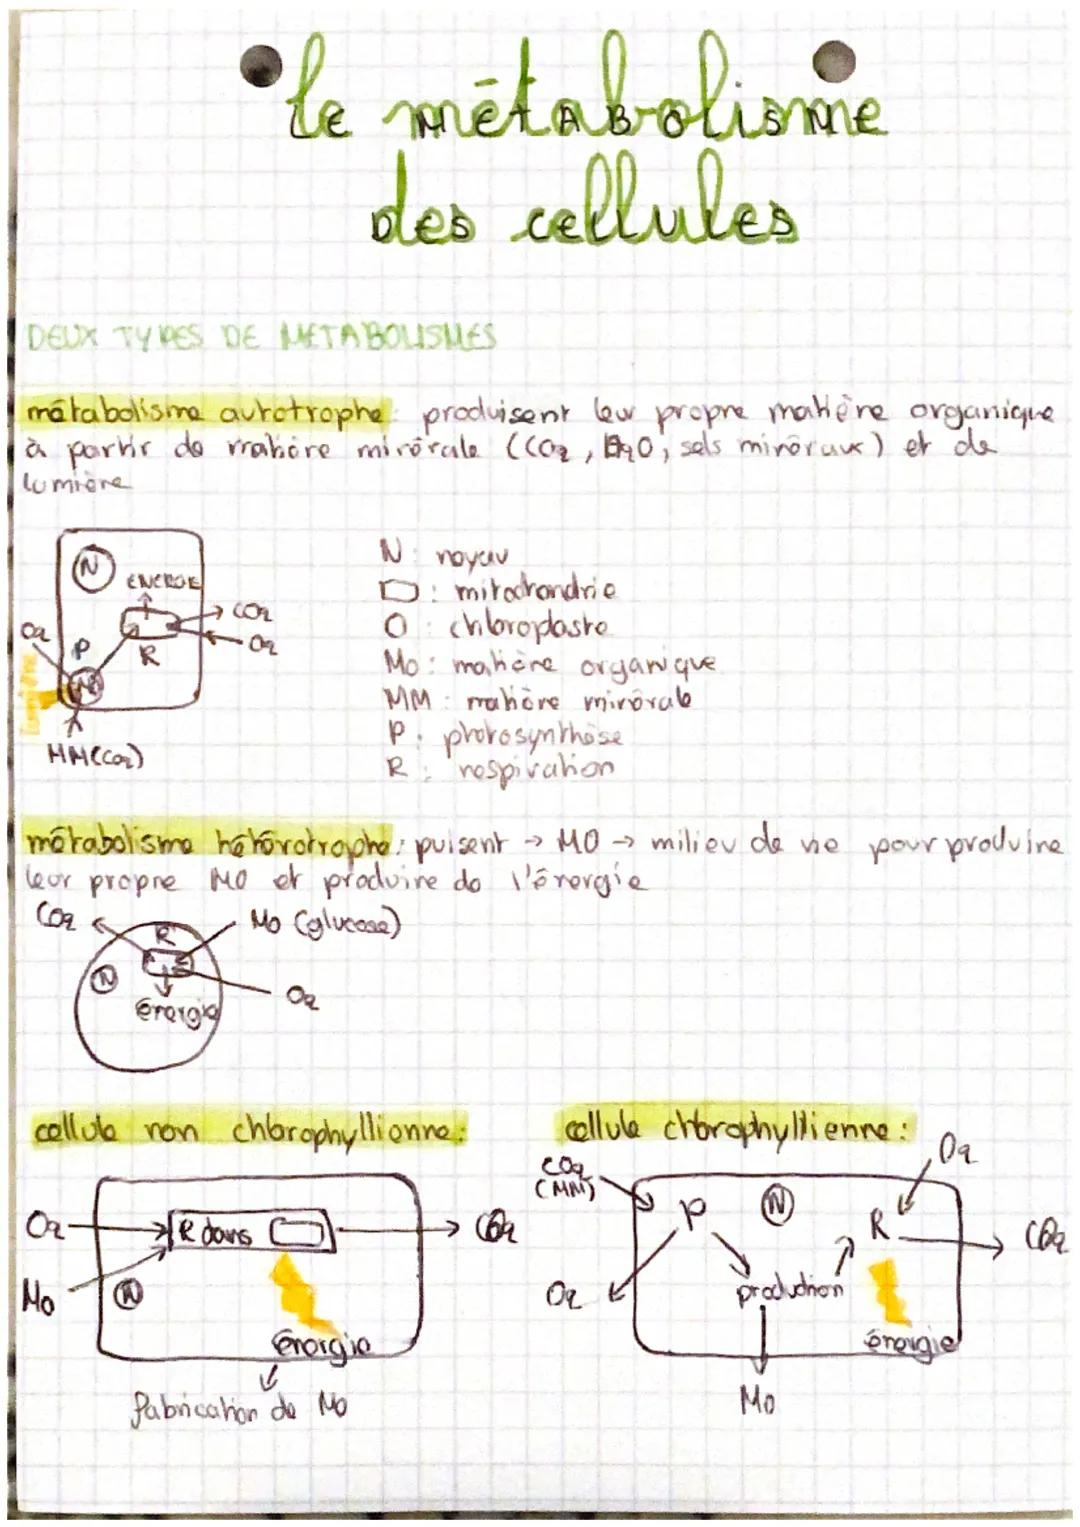 Le métabolisme
des cellules
DEUX TYPES DE METABOLISMES
métabolisme autotrophe : produisent leur propre matière organique
à partir de matière minérale (CO2, H2O, sels minéraux) et de
lumière
N : noyau
: mitochondrie
O : chloroplaste
MO : matière organique
MM : matière minérale
P : photosynthèse
R : respiration
N
ENERGIE
CO2
O2
O2
P
R
lumière
MM(CO2)
métabolisme hétérotrophe : puisent → MO → milieu de vie pour produire
leur propre MO et produire de l'énergie
CO2
R
MO (glucose)
N
énergie
O2
cellule non chlorophyllienne :
O2
R dans
CO2
MO
N
énergie
fabrication de MO
cellule chlorophyllienne :
CO2
(MM)
P
N
O2
R
CO2
O2
production
énergie
MO